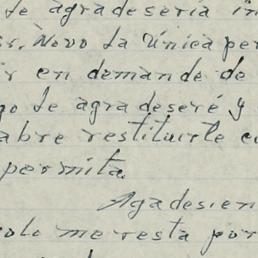 le agradeseria in
ss. Novo la única per
ir en demande de
go le agradeseré y
abre restituirte co
permita.
Agadesien
solo me resta por